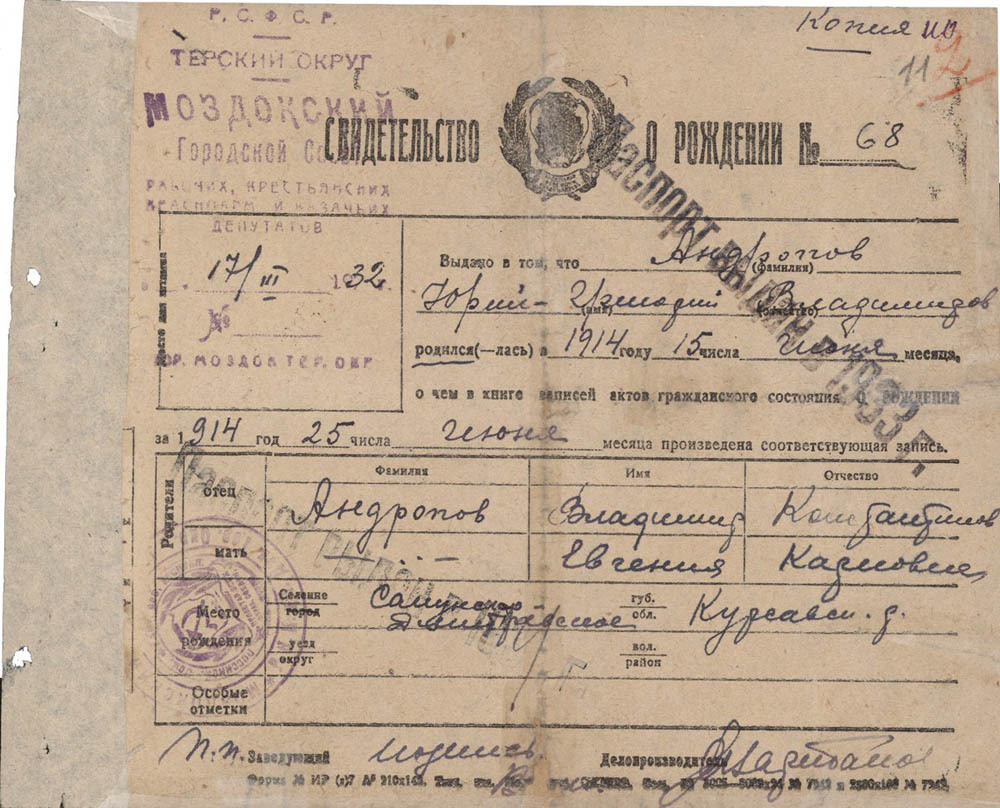 Копия
Р. С. Ф. С. Р.
11 2
ТЕРСКИЙ ОКРУГ
МОЗДОКСКИЙ
СВИДЕТЕЛЬСТВО О РОЖДЕНИИ № 68
Городской Сов
РАБОЧИХ, КРЕСТЬЯНСКИХ
КРАСНОАРМ. И КАЗАЧЬИХ
ДЕПУТАТОВ
17/III 1932
№
ГОР. МОЗДОК ТЕР. ОКР
Место для штампа
Выдано в том, что Андропов
(фамилия)
Юрий- Владимиров
(имя) (отчество)
родился(—лась) в 1914 году 15 числа июня месяца,
о чем в книге записей актов гражданского состояния о рождении
за 1914 год 25 числа июня месяца произведена соответствующая запись.
Паспорт выдан в 1933 г.
Паспорт выдан в
Родители
Фамилия Имя Отчество
отец Андропов Владимир Константинов
мать -"- Евгения Карловна
Место рождения
Селение город губ. обл. Курсавск. р.
уезд округ вол. район
Особые отметки
п.п. Заведующий подпись Делопроизводитель
Форма № ИР (з)7 А⁵ 210х148.